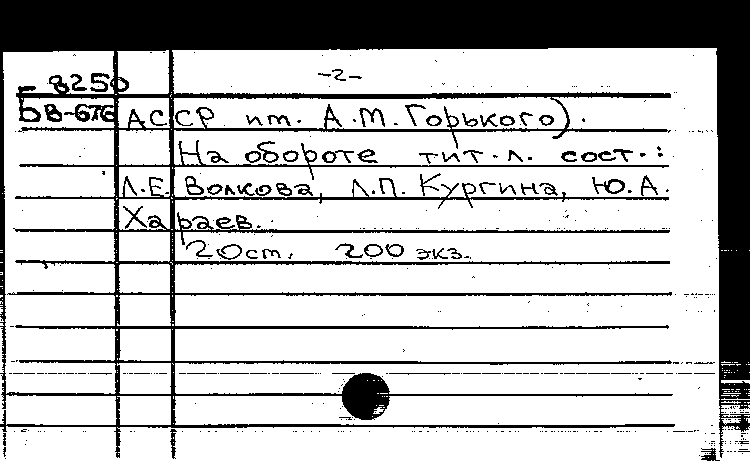 -2-
Г-8250
БВ-676
АССР им. А.М. Горького).
На обороте тит.л. сост.:
Л.Е. Волкова, Л.П. Кургина, Ю.А.
Хараев.
20 ст. 200 экз.